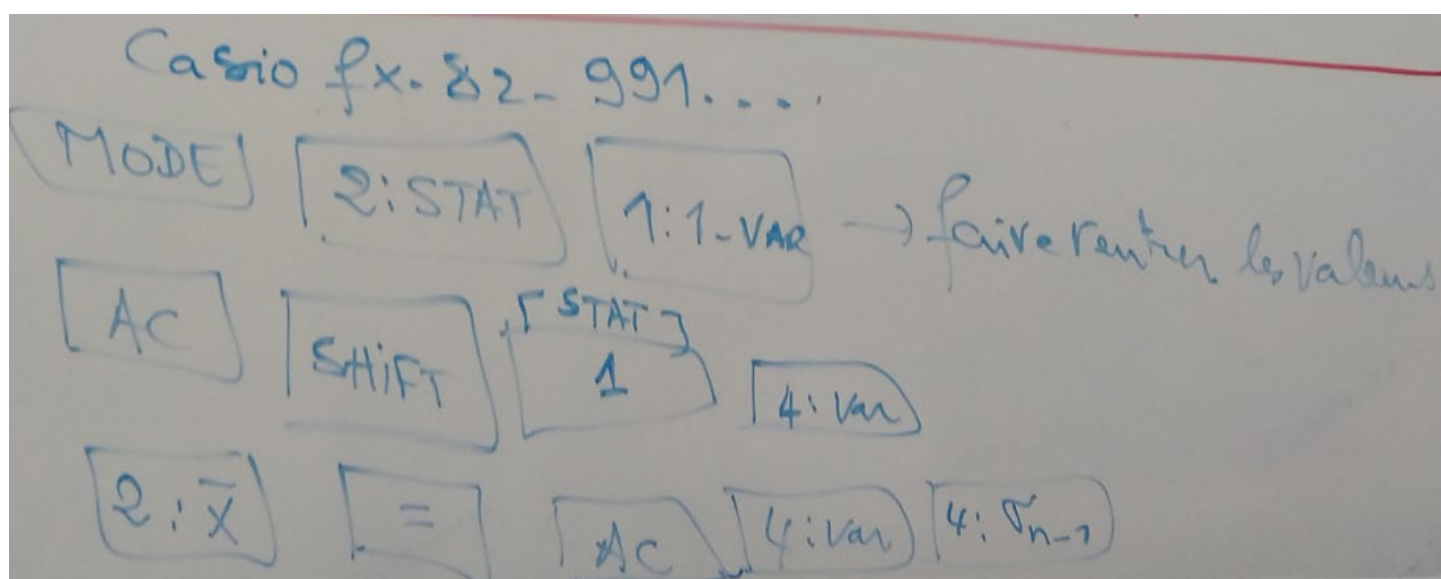 Casio fx-82-991....
MODE 2:STAT 1:1-VAR → faire rentrer les valeurs
AC SHiFT [STAT] 1 4:var
2:x̄ = AC 4:var 4:σn-1